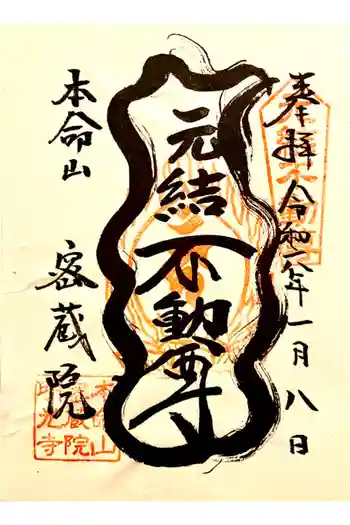 奉拝 令和六年一月八日
元結不動尊
本命山
密蔵院